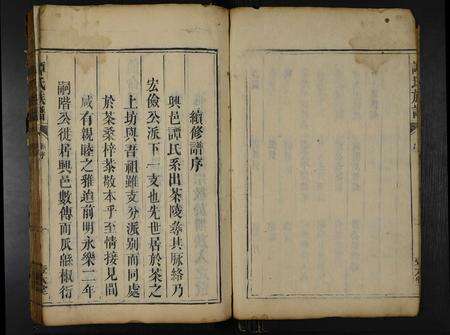 續修譜序
興邑譚氏系出茶陵尋其脉絡乃
宏儉公派下一支也先世居於茶之
上坊與吾祖雖支分派别而同處
於茶桑梓恭敬本乎至情接見間
咸有親睦之雅迨前明永樂二年
嗣階公徙居興邑數傳而瓜緜椒衍
譚氏族譜